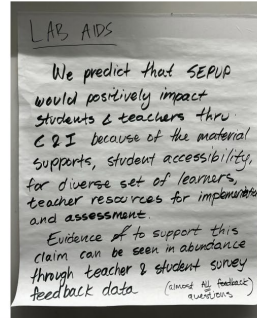 LAB AIDS
We predict that SEPUP
would positively impact
students & teachers thru
C & I because of the material
supports, student accessibility,
for diverse set of learners,
teacher resources for implementation
and assessment.
Evidence to support this
claim can be seen in abundance
through teacher & student survey
feedback data (almost ALL feedback
questions)